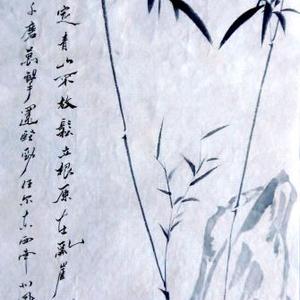 定青山不放鬆立根原在亂崖
千磨萬擊還堅勁任尔東西南北